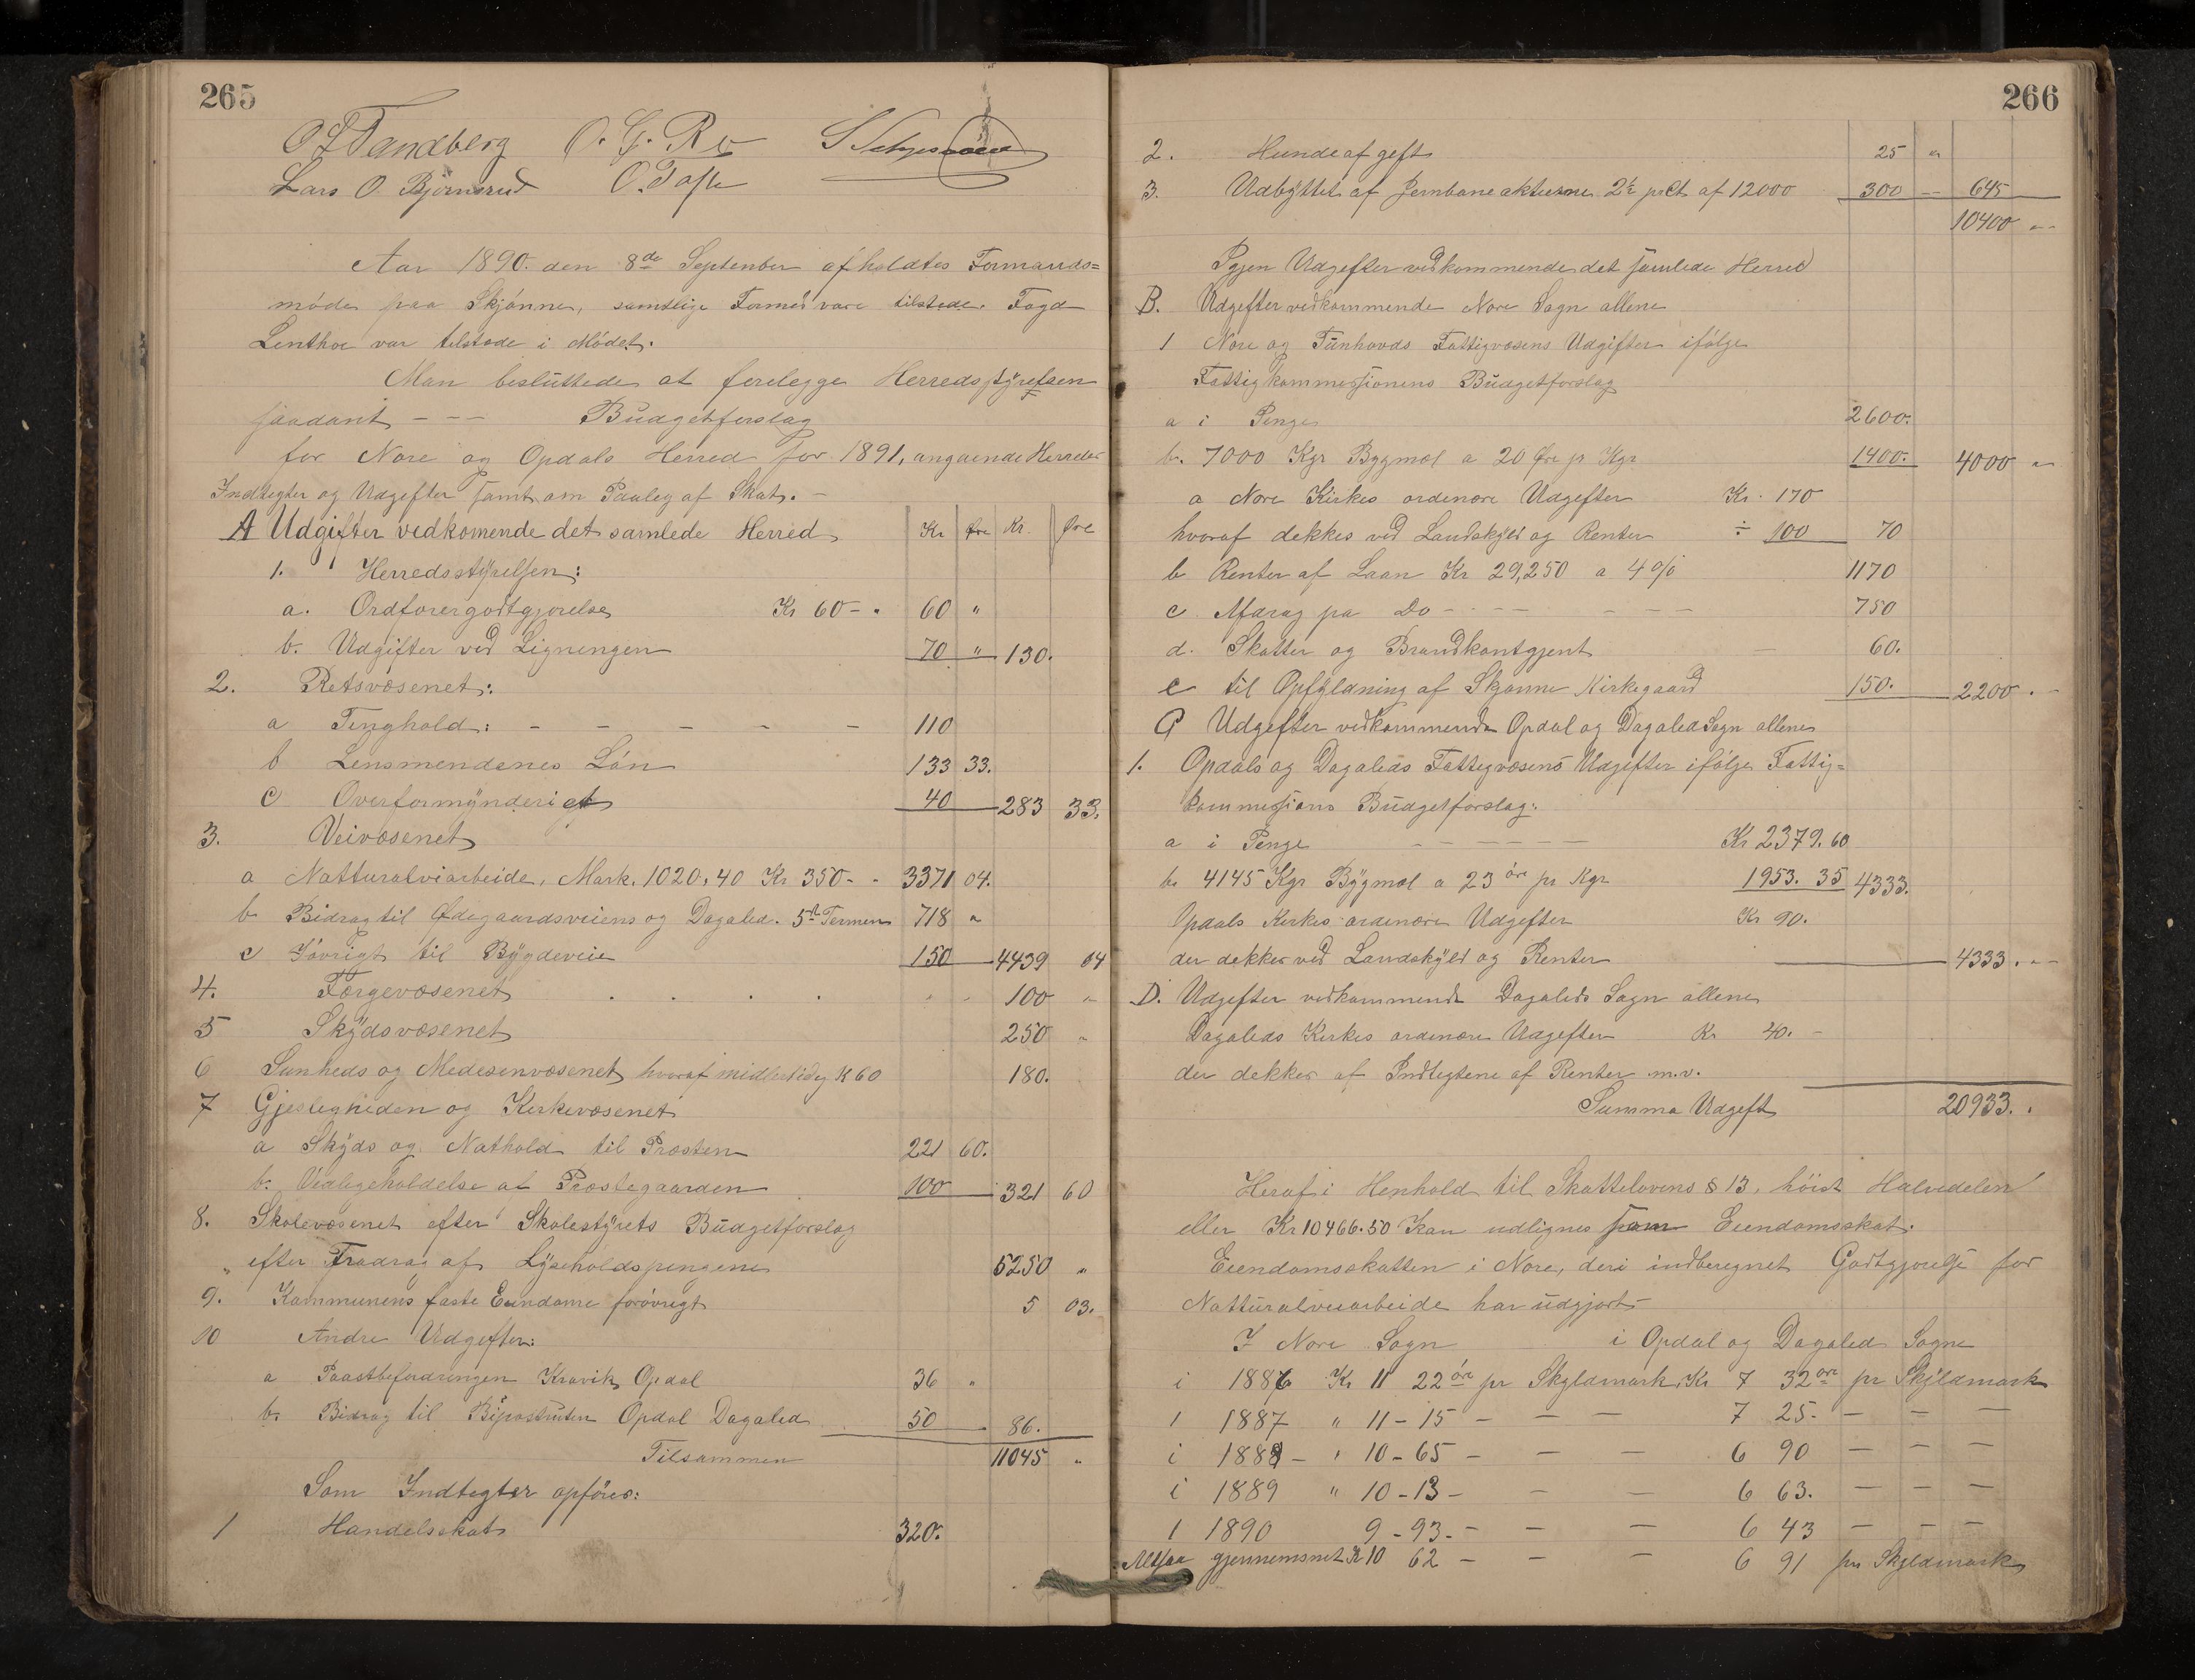 265
O. T. Tandberg O. G. Ro
Lars O. Bjørnsrud O. Tofte
Aar 1890. den 8de September afholdtes Formands=
møde paa Skjønne, samtlige Formæd vare tilstede. Fogd
Lenthoe var tilstede i Mødet.
Man besluttede at forelegge Herredsstyrelsen
saadant - - - Budgetforslag
for Nore og Opdals Herred for 1891, angaaende Herredets
Indtegter og Udgefter samt om Paaleg af Skat. -
A Udgifter vedkomende det samlede Herred Kr Øre Kr. Øre
1. Herredsstyrelsen:
a. Ordførergodtgjørelse Kr 60 - " 60 "
b. Udgifter ved Ligningen 70 " 130.
2. Retsvæsenet:
a Tinghold: - - - - - 110
b Lensmendenes Løn 133 33.
c Overformynderiet 40 283 33.
3. Veivæsenet
a Natturalviarbeide, Mark. 1020,40 Kr 350 - - 3371 04.
b Bidrag til Ødegaardsveiens og Dagalid. 5te Termin 718 "
c Iøvrigt til Bygdeveie 150 4439 04
4. Færgevæsenet . . . . 100 "
5 Skydsvæsenet 250 "
6 Sunheds og Medesenvæsenet hvoraf midlertidig K 60 180.
7 Gjestligheden og Kirkevæsenet
a Skyds og Nathold til Præsten 221 60.
b. Vedligeholdelse at Præstegaarden 100 321 60
8. Skolevæsenet efter Skolestyrets Budgetforslag
" efter Fradrag af Lyseholdspengene 5250 "
9. Kommunens faste Eiendome forøvrigt 5 03.
10 Andre Udgefter:
a Paastbefordringen Kravik Opdal 36 "
b. Bidrag til Bipostruten Opdal Dagalid 50 86.
Tilsammen 11045 "
Som Indtegter opføres:
1 Handelsskat 320.
266
2. Hundeafgeft 25 "
3. Udbyttet af Jernbaneaktierne 2½ prCt af 12000 300 - 645
10400 "
Igjen Udgefter vedkommende det samlede Herred
B. Udgefter vedkommende Nore Sogn allene
1 Nore og Tunhovds Fattigvæsens Udgifter ifølge
Fattigkommissionens Budgetforslag
a i Penge 2600.
b. 7000 Kgr Bygmel a 20 Øre pr Kgr 1400. 4000 "
a Nore Kirkes ordenære Udgefter Kr. 170
hvoraf dekkes ved Landskyld og Renter ÷ 100 70
b Renter af Laan Kr 29,250 a 4 % 1170
c Afdrag pa Do - - - - - - - 750
d. Skatter og Brandkontgjent - 60.
e til Opfyldning af Skjønne Kirkegaard 150. 2200. -
C Udgefter vedkommende Opdal og Dagalid Sogn allene
1. Opdals og Dagalids Fattegvæsens Udgefter ifølge Fattig=
kommissions Budgetforslag:
a i Penge - - - - - Kr 2379. 60
b. 4145 Kgr Bygmel a 23 øre pr Kgr 1953. 35 4333.
Opdals Kirkes ordenære Udgefter Kr 90.
der dekkes ved Landskyld og Renter 4333. "-
D. Udgefter vedkommende Dagalids Sogn allene
Dagalids Kirkes ordenære Udgefter Kr 40. -
der dekkes af Indtegtene af Renter m.v.
Summa Udgeft 20933. "
Heraf i Henhold til Skattelovens § 13, høist Halvedelen
eller Kr 10466.50 Kan udlignes som Eiendomsskat.
Eiendomsskatten i Nore, deri indberegnet Godtgjørelse for
Natturalveiarbeide har udgjort -
I Nore Sogn i Opdal og Dagalid Sogne
i 1886 Kr 11 22 øre pr Skyldmark, Kr 7 32 øre pr Skyldmark
i 1887 " 11 - 15 - - - 7 25. - - -
i 1888 - " 10 - 65 - - - 6 90 - - -
i 1889 " 10 - 13 - - - 6 63. - - -
i 1890 9 - 93. - - - 6 43 - - -
Altsaa gjennemsnet Kr 10 62 - - - 6 91 pr Skyldmark